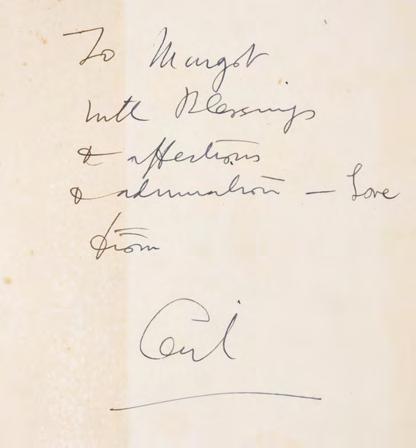 To Margot
with Blessings
& affections
& admiration — Love
from
Cecil